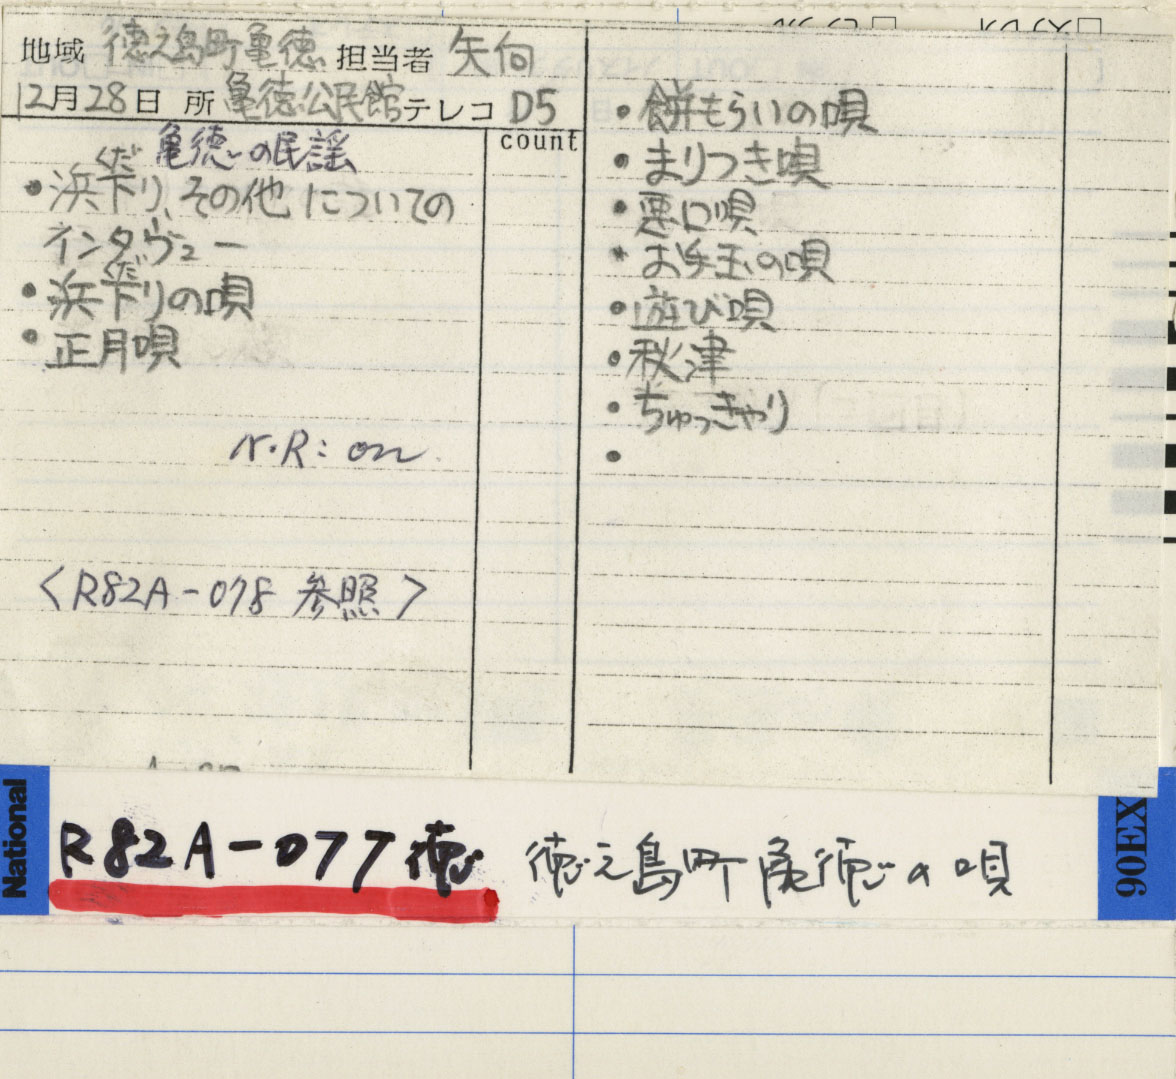 地域 徳之島町亀徳 担当者 矢向
12月28日 所 亀徳公民館 テレコ D5
count
亀徳の民謡
くだ
・浜下り、その他についての
インタヴュー
くだ
・浜下りの唄
・正月唄
N.R: on
<R82A-078 参照>
・餅もらいの唄
・まりつき唄
・悪口唄
・お手玉の唄
・遊び唄
・秋津
・ちゅっきゃり
・
National
R82A-077 徳 徳之島町亀徳の唄
90EX